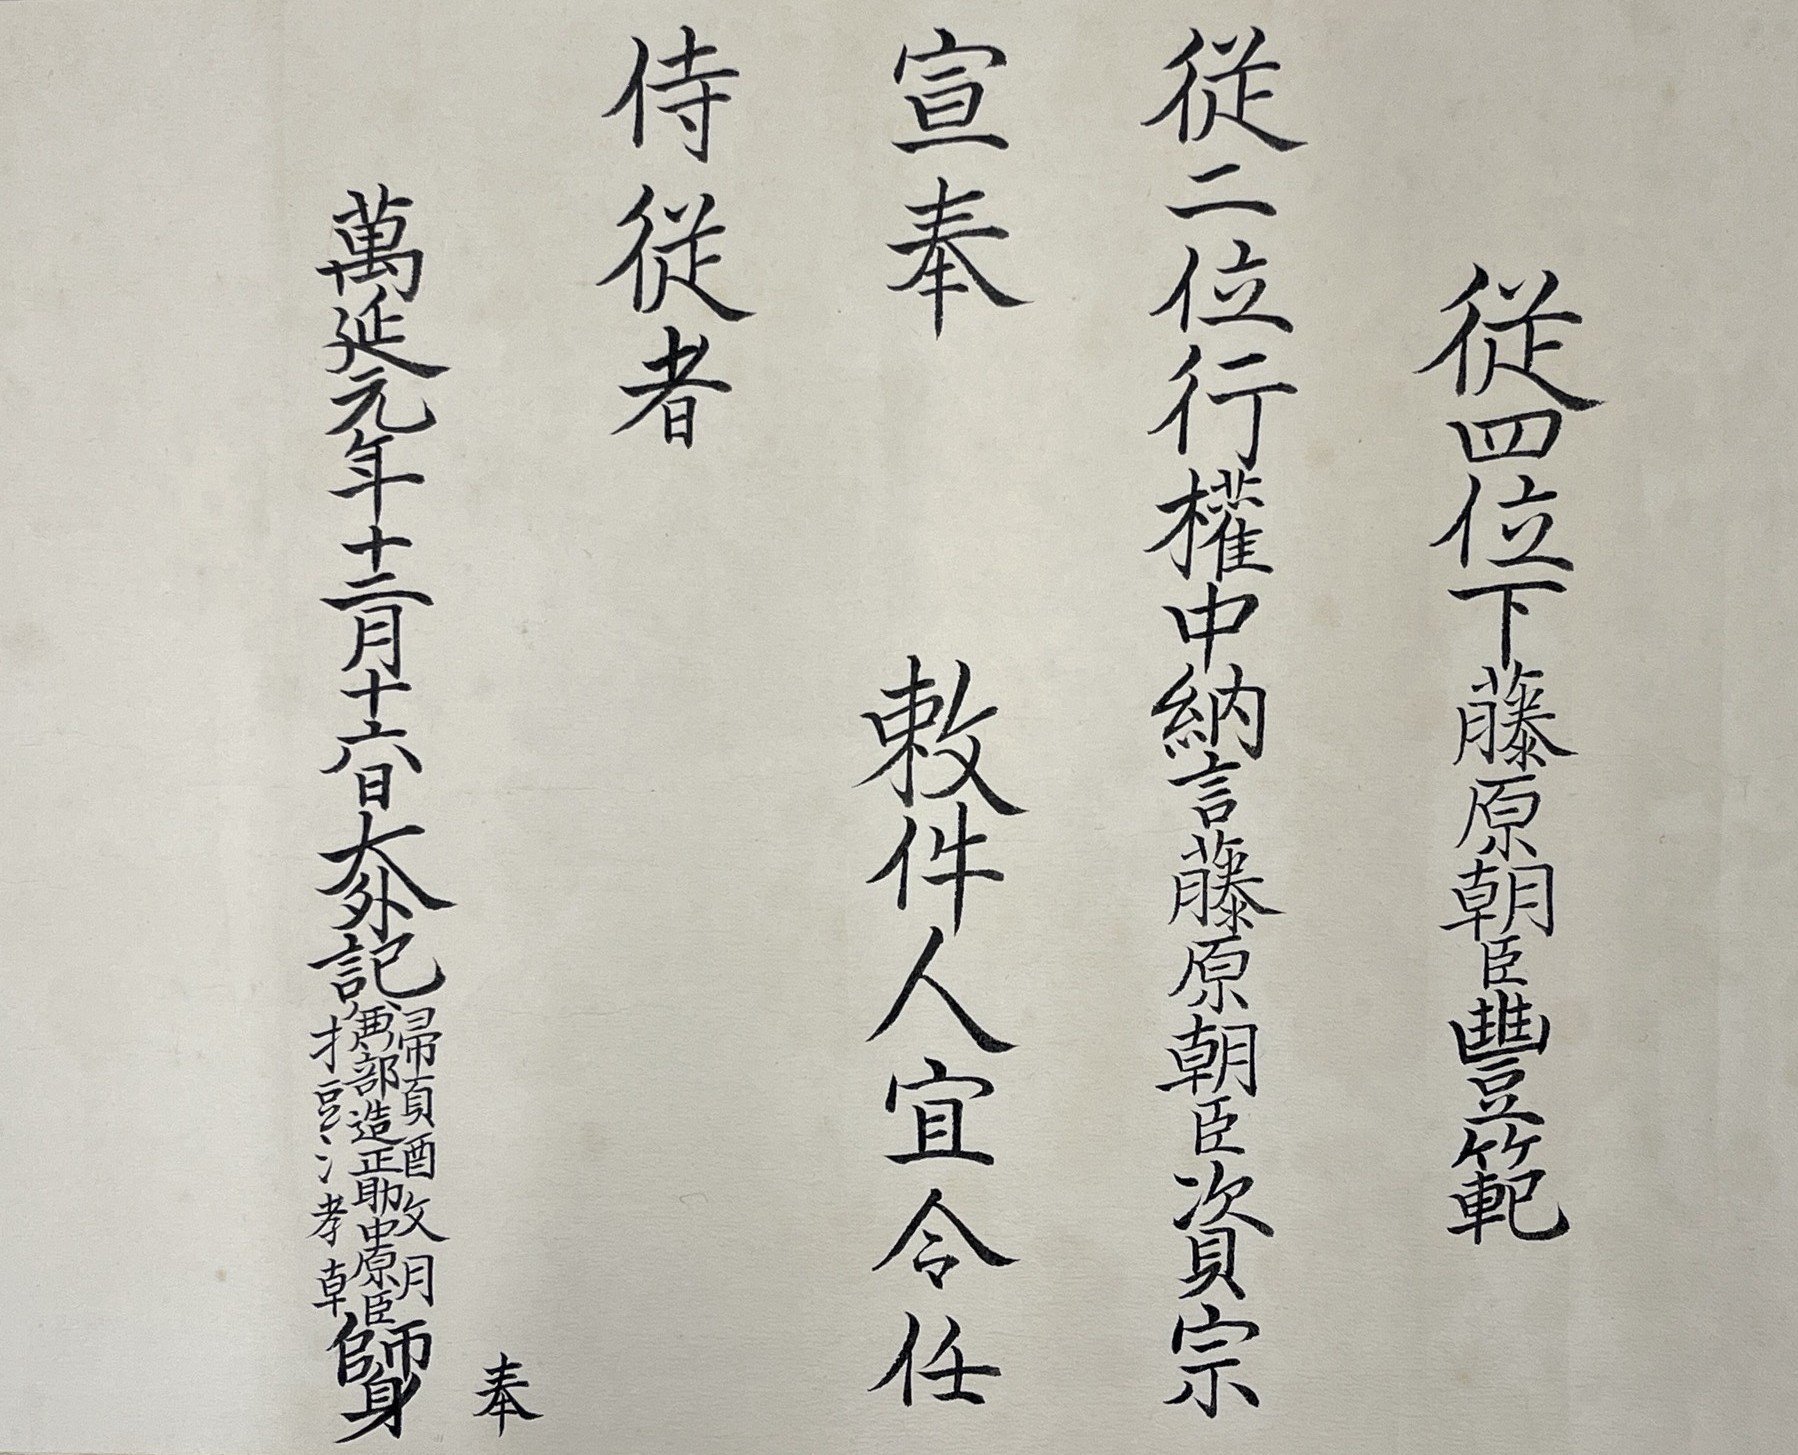 従四位下藤原朝臣豐範
従二位行權中納言藤原朝臣資宗
宣奉 敕件人宜令任
侍従者
萬延元年十二月十六日大外記兼掃部頭造酒正助教中原朝臣師身
奉